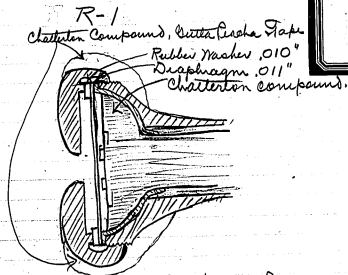 R-1
Chatterton Compound, Gutta Percha Tape
Rubber Washer .010"
Diaphragm .011"
Chatterton compound.